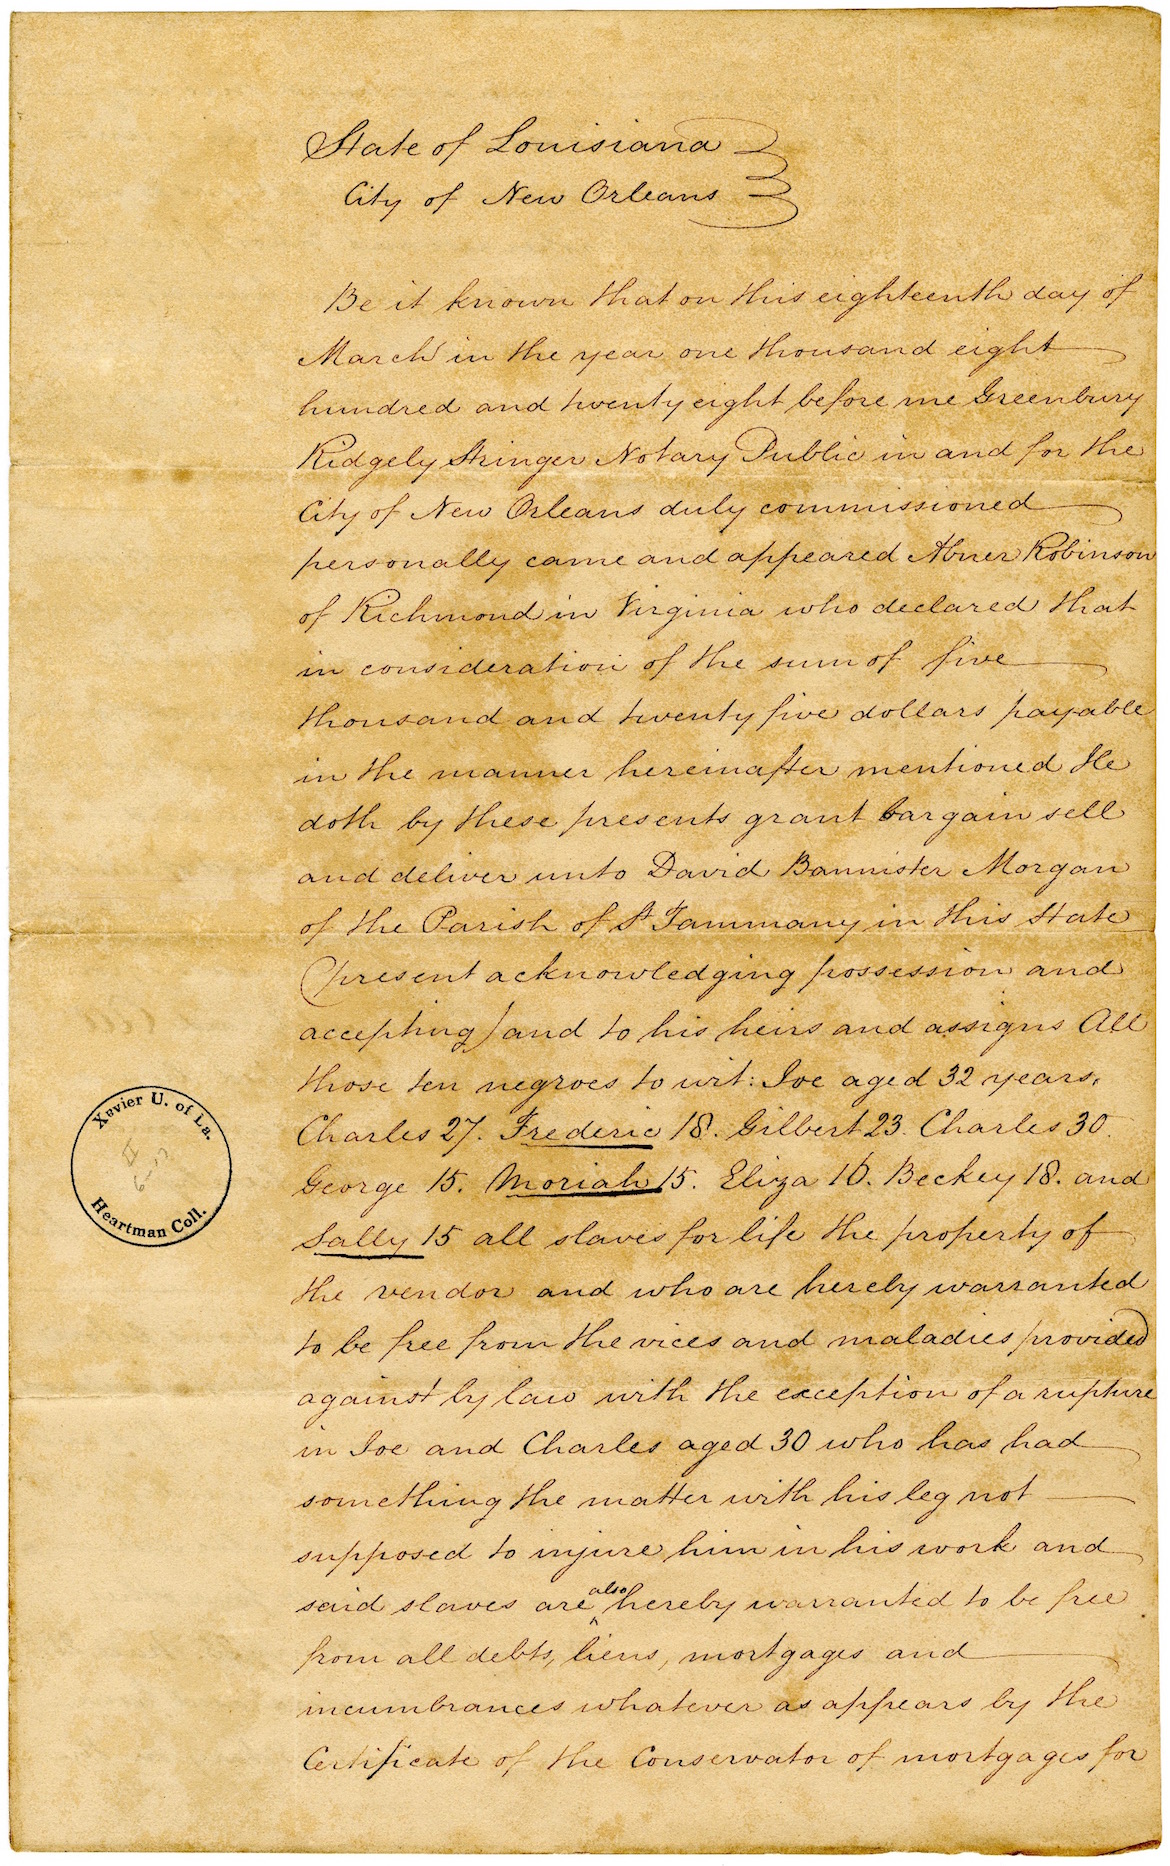 State of Louisiana
City of New Orleans
Be it known that on this eighteenth day of
March in the year one thousand eight
hundred and twenty eight before me Greenbury
Ridgely Stringer Notary Public in and for the
City of New Orleans duly commissioned
personally came and appeared Abner Robinson
of Richmond in Virginia who declared that
in consideration of the sum of five
thousand and twenty five dollars payable
in the manner hereinafter mentioned He
doth by these presents grant bargain sell
and deliver unto David Bannister Morgan
of the Parish of St Tammany in this State
(present acknowledging possession and
accepting) and to his heirs and assigns All
those ten negroes to wit: Joe aged 32 years,
Charles 27. Frederic 18. Gilbert 23. Charles 30.
George 15. Moriah 15. Eliza 16. Beckey 18. and
Sally 15 all slaves for life the property of
the vendor and who are hereby warranted
to be free from the vices and maladies provided
against by law with the exception of a rupture
in Joe and Charles aged 30 who has had
something the matter with his leg not
supposed to injure him in his work and
said slaves are also hereby warranted to be free
from all debts, liens, mortgages and
incumbrances whatever as appears by the
Certificate of the Conservator of mortgages for
Xavier U. of La.
Heartman Coll.